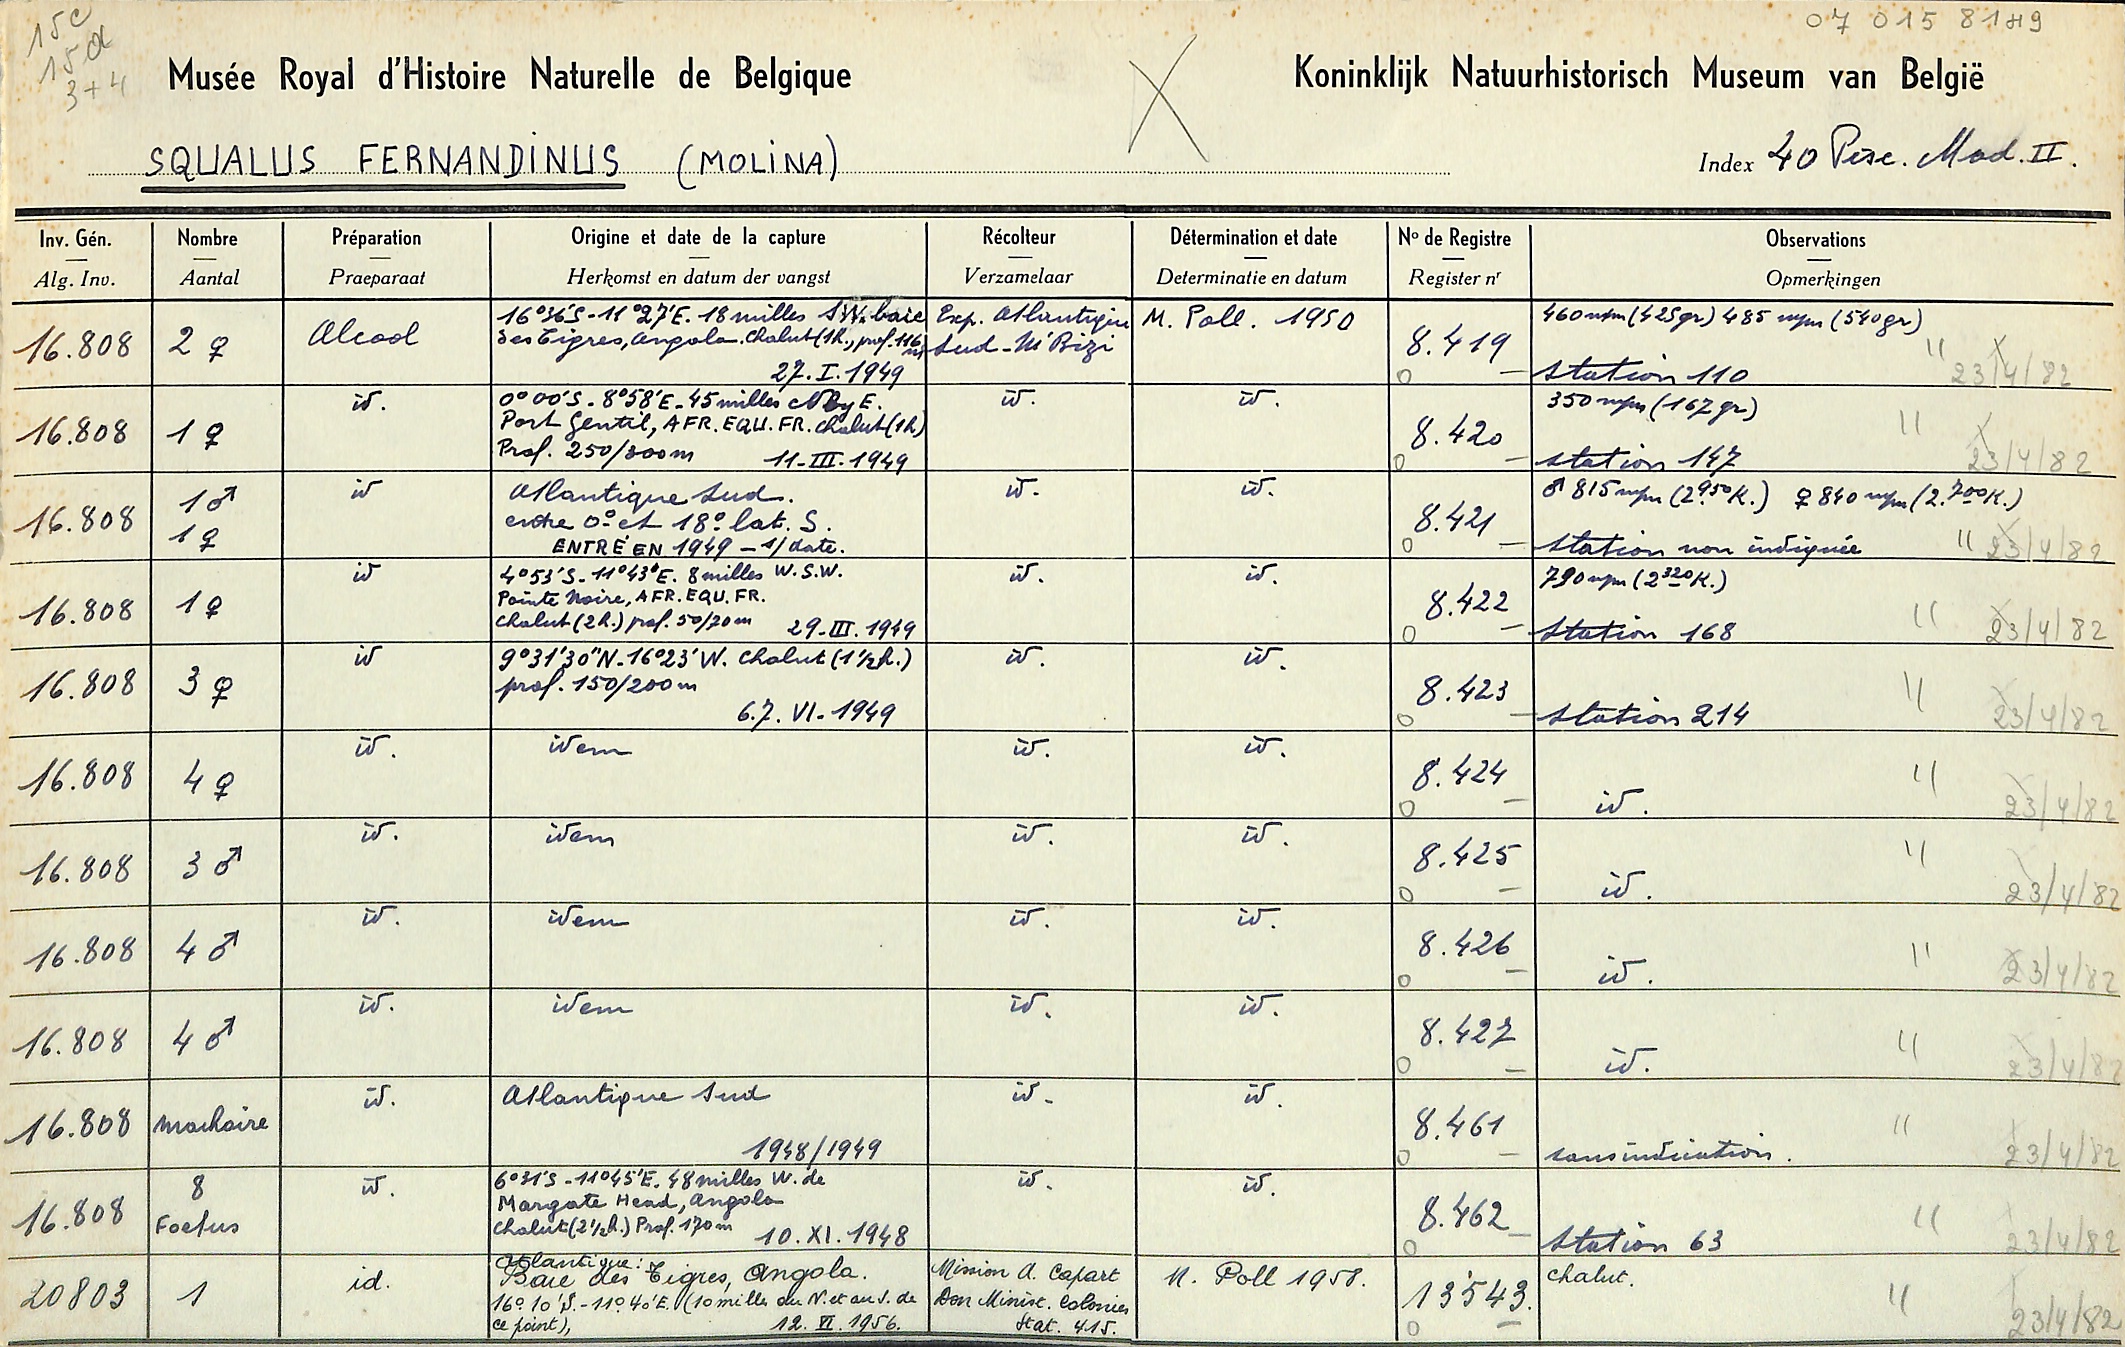 15c
15a
3+4
07 015 8189
Musée Royal d'Histoire Naturelle de Belgique
Koninklijk Natuurhistorisch Museum van België
SQUALUS FERNANDINUS (MOLINA)
Index 40 Pisc. Mad. II.
Inv. Gén. Nombre Préparation Origine et date de la capture Récolteur Détermination et date No de Registre Observations
Alg. Inv. Aantal Praeparaat Herkomst en datum der vangst Verzamelaar Determinatie en datum Register nr Opmerkingen
16°36'S-11°27'E. 18 milles SW. baie Exp. Atlantique M. Poll. 1950 460 mm (425gr) 485 mm (540gr)
16.808 2 ♀ Alcool des Tigres, Angola. Chalut (1h.), prof. 116 m Sud - M'Bizi 8.419 "
27.I.1949 O – Station 110 23/4/82
id. 0°00'S - 8°58'E - 45 milles N by E. id. id. 350 mm (167 gr)
16.808 1 ♀ Port Gentil, AFR. EQU. FR. chalut (1h) 8.420 "
Prof. 250/300m 11-III-1949 O – Station 147 23/4/82
1 ♂ id Atlantique Sud. id. id. ♂ 815 mm (2.950 K.) ♀ 840 mm (2.700 K.)
16.808 1 ♀ entre 0° et 18° lat. S. 8.421
ENTRÉ EN 1949 – s/date. O – Station non indiquée " 23/4/82
id 4°53'S - 11°43'E. 8 milles W.S.W. id. id. 790 mm (2.320 K.)
16.808 1 ♀ Pointe Noire, AFR. EQU. FR. 8.422 "
Chalut (2h.) prof. 50/70m 29-III.1949 O – Station 168 23/4/82
id 9°31'30"N - 16°23'W. Chalut (1½h.) id. id.
16.808 3 ♀ prof. 150/200m 8.423 "
6.7. VI-1949 O – Station 214 23/4/82
id. idem id. id.
16.808 4 ♀ 8.424 "
O – id. 23/4/82
id. idem id. id.
16.808 3 ♂ 8.425 "
O – id. 23/4/82
id. idem id. id.
16.808 4 ♂ 8.426 "
O – id. 23/4/82
id. idem id. id.
16.808 4 ♂ 8.427 "
O – id. 23/4/82
id. Atlantique Sud id. id.
16.808 machoire 8.461 "
1948/1949 O – sans indication. 23/4/82
8 id. 6°31'S - 11°45'E. 48 milles W. de id. id.
16.808 Foetus Margate Head, Angola 8.462 "
Chalut (2½h.) Prof. 170m 10.XI.1948 O – Station 63 23/4/82
Atlantique: Mission A. Capart chalut.
20803 1 id. Baie des Tigres, Angola. M. Poll 1958. 13543. "
16° 10'S.-11° 40'E. (10 milles au N. et au S. de Don Minist. Colonies
ce point), 12. VI. 1956. Stat. 415. O – 23/4/82